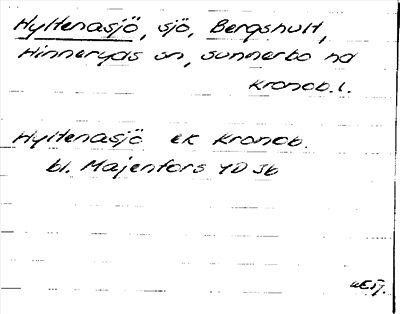 Hyltenasjö, sjö, Bergshult,
Hinneryds sn, Sunnerbo hd
Kronob. l.
Hyltenasjö ek Kronob.
bl. Majenfors 4D Jb